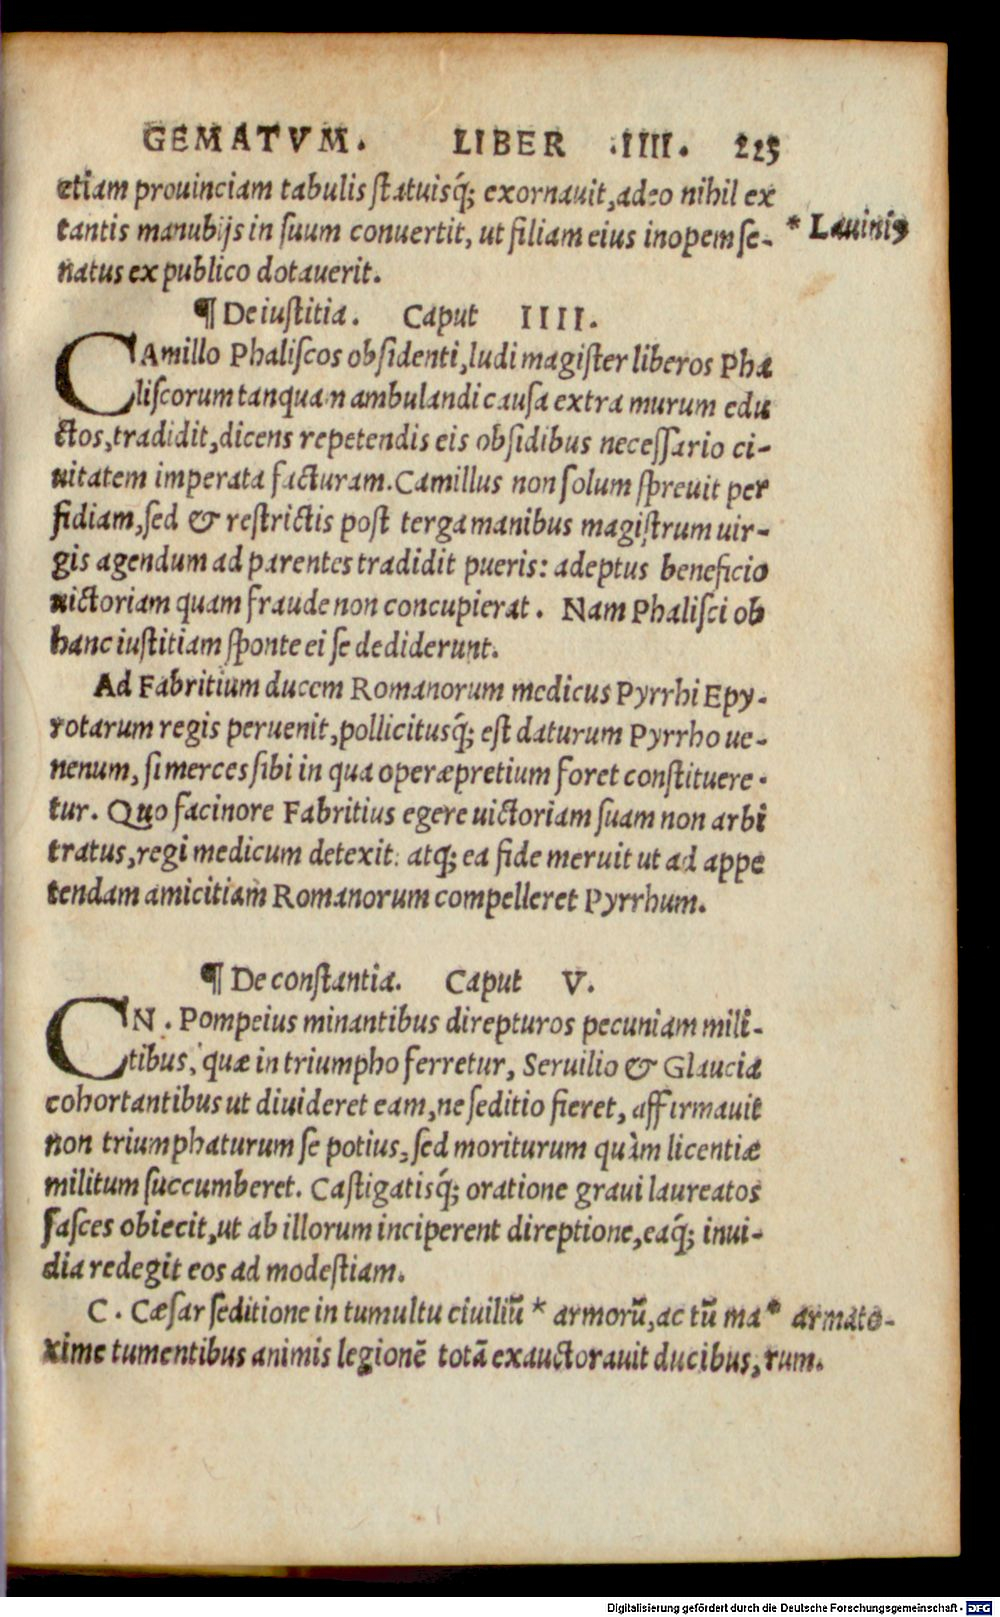 GEMATVM. LIBER .IIII. 225
etiam prouinciam tabulis ſtatuisq́; exornauit, adeo nihil ex
tantis manubijs in ſuum conuertit, ut filiam eius inopem ſe-
* Lauinis
natus ex publico dotauerit.
¶ De iuſtitia. Caput IIII.
CAmillo Phaliſcos obſidenti, ludi magiſter liberos Pha
liſcorum tanquam ambulandi cauſa extra murum edu
ctos, tradidit, dicens repetendis eis obſidibus neceſſario ci-
uitatem imperata facturam. Camillus non ſolum ſpreuit per
fidiam, ſed & reſtrictis poſt terga manibus magiſtrum uir-
gis agendum ad parentes tradidit pueris: adeptus beneficio
uictoriam quam fraude non concupierat. Nam Phaliſci ob
hanc iuſtitiam ſponte ei ſe dediderunt.
Ad Fabritium ducem Romanorum medicus Pyrrhi Epy-
rotarum regis peruenit, pollicitusq́; eſt daturum Pyrrho ue-
nenum, ſi merces ſibi in qua operæpretium foret conſtituere-
tur. Quo facinore Fabritius egere uictoriam ſuam non arbi
tratus, regi medicum detexit: atq; ea fide meruit ut ad appe
tendam amicitiam Romanorum compelleret Pyrrhum.
¶ De conſtantia. Caput V.
CN. Pompeius minantibus direpturos pecuniam mili-
tibus, quæ in triumpho ferretur, Seruilio & Glaucia
cohortantibus ut diuideret eam, ne ſeditio fieret, affirmauit
non triumphaturum ſe potius, ſed moriturum quàm licentiæ
militum ſuccumberet. Caſtigatisq́; oratione graui laureatos
faſces obiecit, ut ab illorum inciperent direptione, eaq́; inui-
dia redegit eos ad modeſtiam.
C. Cæſar ſeditione in tumultu ciuiliũ * armorũ, ac tũ ma * armato-
xime tumentibus animis legionẽ totã exauctorauit ducibus, rum.
Digitalisierung gefördert durch die Deutsche Forschungsgemeinschaft - DFG